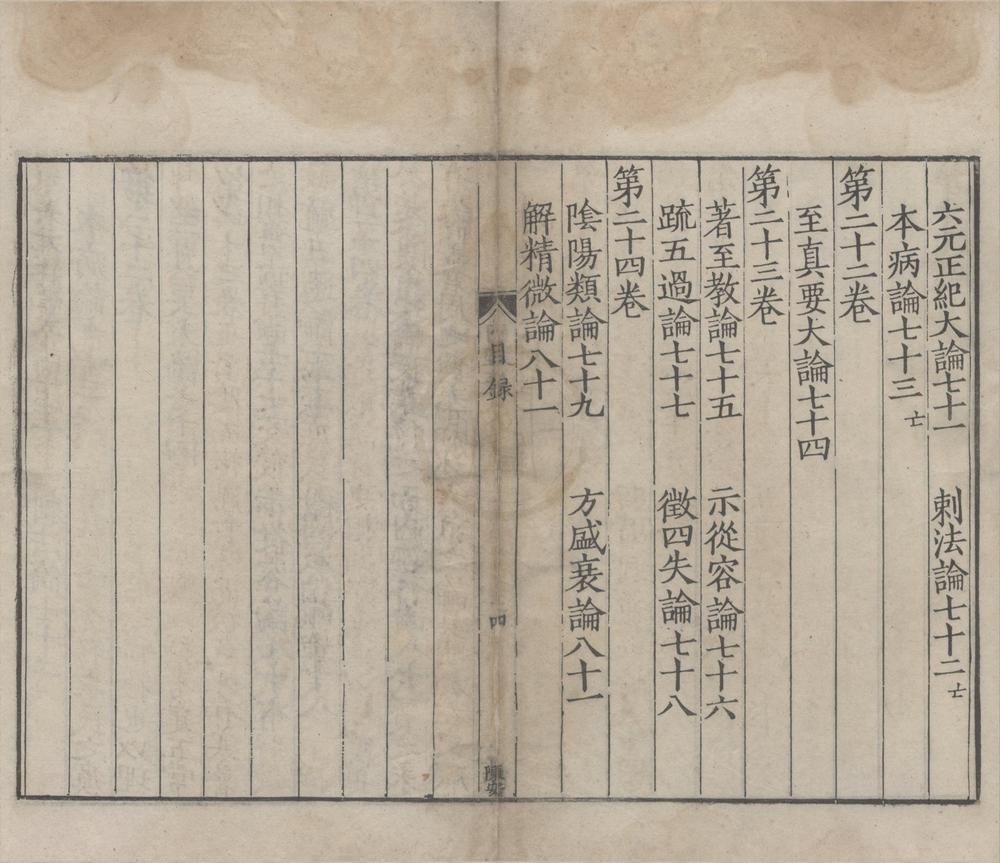 六元正紀大論七十一　刺法論七十二亡
本病論七十三亡
第二十二卷
至真要大論七十四
第二十三卷
著至教論七十五　示從容論七十六
疏五過論七十七　徵四失論七十八
第二十四卷
陰陽類論七十九　方盛衰論八十一
解精微論八十一
目録
四